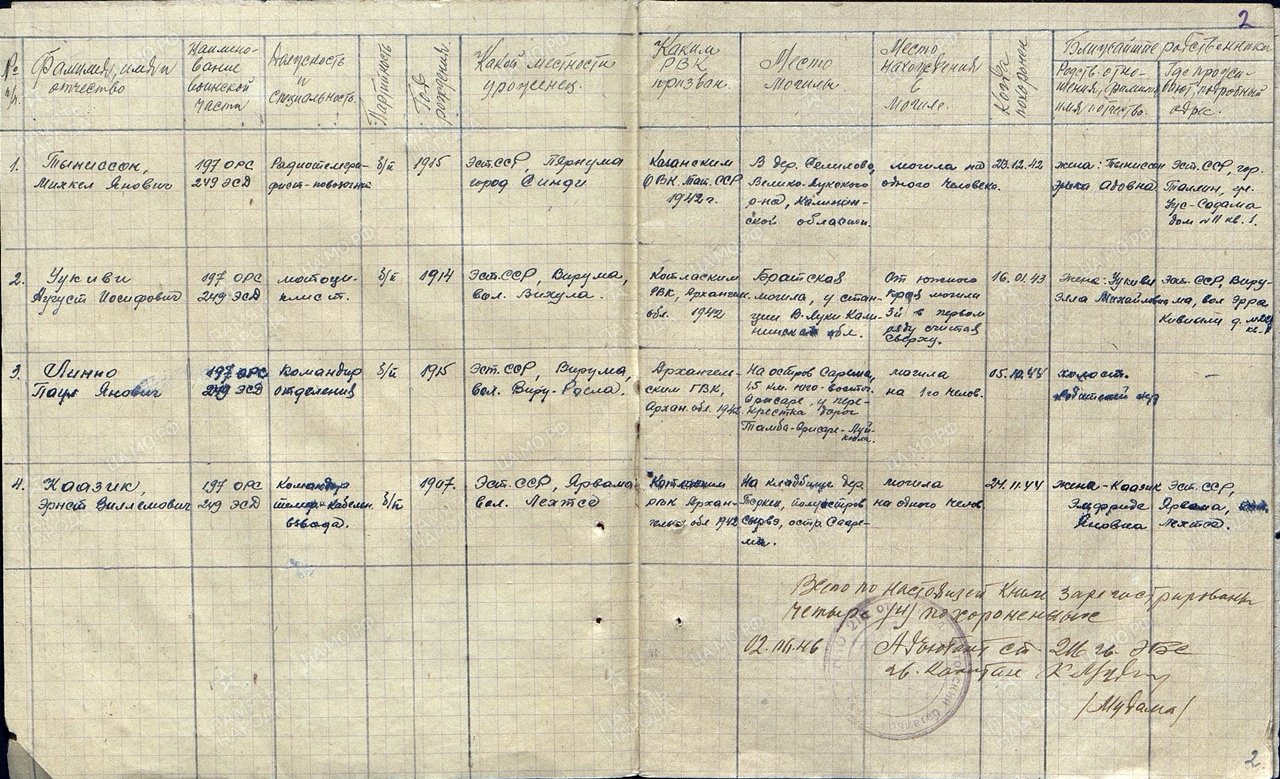 2
№ п/п.
Фамилия, имя и отчество
Наимено-
вание
воинской
части
Должность
и
специальность
Партийность
Год рождения.
Какой местности
уроженец.
Каким
РВК
призван.
Место
могилы.
Место
нахождения
в
могиле.
Когда похоронен.
Ближайшие родственники
Родств. отно-
шения, фамилия
имя, отчество.
Где прожи-
вают, подробный
адрес.
1.
Тыниссон,
Михкел Янович
197 ОРС
249 ЭСД
Радиотелегра-
фист-
б/п
1915
Эст.ССР, Пярнума
город Синди
Каганским
РВК
1942 г.
В дер.
Велико-Лукского
р-на, Калинин-
ской области.
могила на
одного человека.
23.12.42
жена: Тыниссон
Эст.ССР, гор.
Таллин,
дом №11 кв. 1.
2.
Уукиви
Аугуст Иосифович
197 ОРС
249 ЭСД
мотоци-
клист.
б/п
1914
Эст.ССР, Вирума,
вол. Вихула.
Котласким
РВК, Архангел.
обл. 1942
Братская
могила, у стан-
ции В-Луки Кали-
нинской обл.
от южного
края могилы
3й в первом
ряду считая
сверху.
16.01.43
жена: Уукиви
Элла
Эст.ССР, Виру-
ма, вол Эрра
Кивиыли
3.
Линно
Паул Янович
197 ОРС
249 ЭСД
Командир
отделения
б/п
1915
Эст.ССР, Вирума,
вол. Виру-
Архангель-
ским ГВК,
Архан. обл. 1942
На остров Сарема,
юго-восточ.
Орисаре, у пере-
крестка дорог
-Орисаре-
могила
на 1-го челов.
05.10.44
холост.
–
4.
Каазик,
Эрнст Виллемович
197 ОРС
249 ЭСД
Командир
взвода.
б/п
1907.
Эст.ССР, Ярвама
вол. Лехтсе
Котласким
РВК Архан-
обл 1942
На кладбище дер.
полуостров
Сырвэ, остр. Сааре-
ма.
могила
на одного челов.
24.11.44
жена - Каазик
Эльфриде
Яновна
Эст.ССР,
Ярвама,
Лехтсе.
Всего по настоящей книге зарегистрированы
четыре /4/ похороненных
Адъютант
гв. капитан
/Мудама/
2.